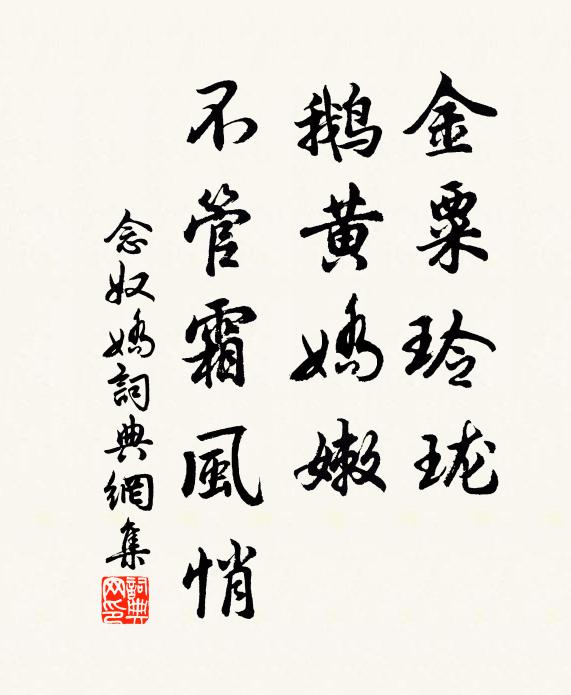 金粟玲珑
鹅黄嬌嫩
不管霜風悄
念奴嬌詞典網集
詞典网印